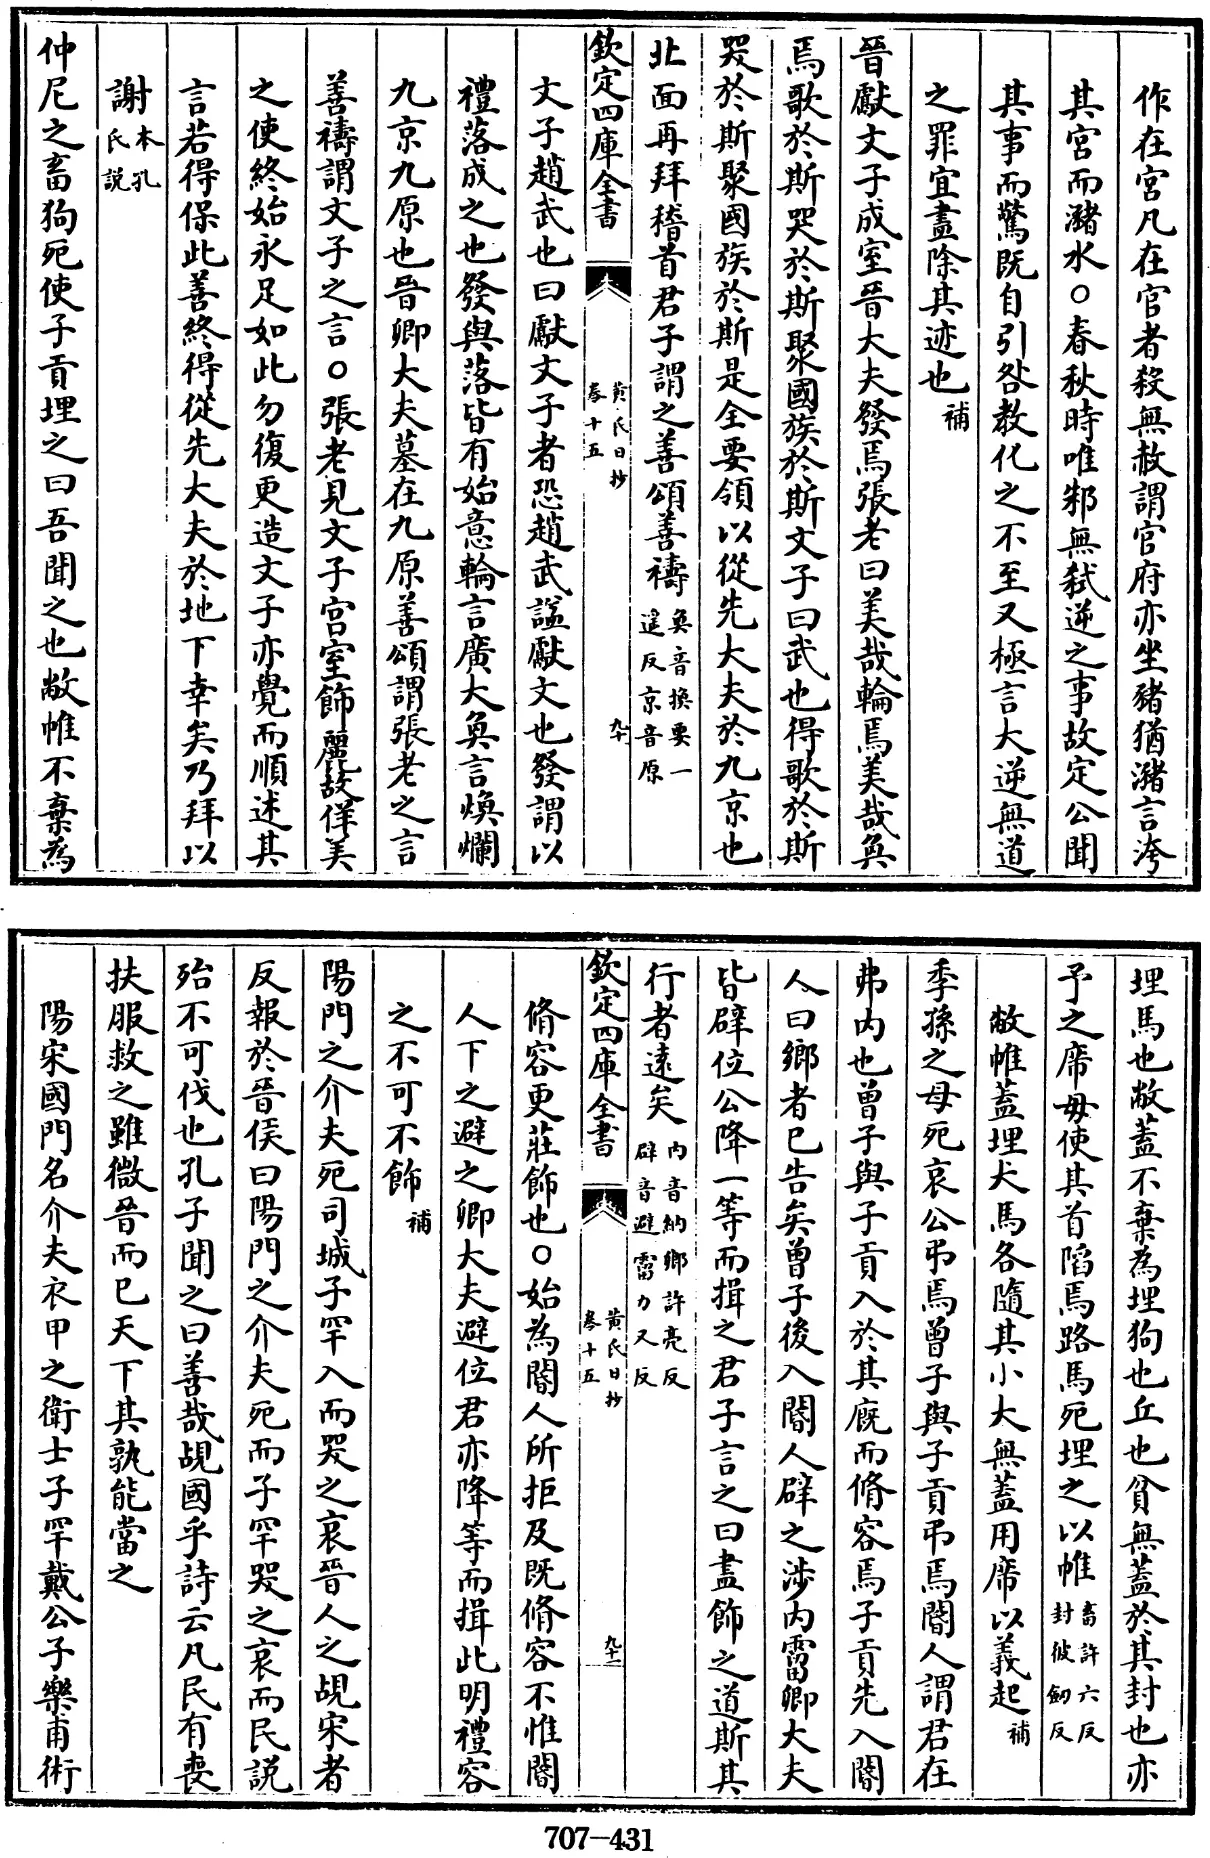 作在宮凡在官者殺無赦謂官府亦坐豬猶瀦言洿
其宮而瀦水○春秋時唯邾無弑逆之事故定公聞
其事而驚既自引咎教化之不至又極言大逆無道
之罪宜盡除其迹也補
晉獻文子成室晉大夫發焉張老曰美哉輪焉美哉奐
焉歌於斯哭於斯聚國族於斯文子曰武也得歌於斯
哭於斯聚國族於斯是全要領以從先大夫於九京也
北面再拜稽首君子謂之善頌善禱奐音換要一
遥反京音原
欽定四庫全書
黃氏日抄
卷十五
九十
文子趙武也曰獻文子者恐趙武諡獻文也發謂以
禮落成之也發與落皆有始意輪言廣大奐言煥爛
九京九原也晉卿大夫墓在九原善頌謂張老之言
善禱謂文子之言○張老見文子宮室飾麗故佯美
之使終始永足如此勿復更造文子亦覺而順述其
言若得保此善終得從先大夫於地下幸矣乃拜以
謝本孔
氏説
仲尼之畜狗死使子貢埋之曰吾聞之也敝帷不棄為
埋馬也敝蓋不棄為埋狗也丘也貧無蓋於其封也亦
予之席毋使其首䧟焉路馬死埋之以帷畜許六反
封彼劒反
敝帷蓋埋犬馬各隨其小大無蓋用席以義起補
季孫之母死哀公弔焉曾子與子貢弔焉閽人謂君在
弗内也曾子與子貢入於其廐而脩容焉子貢先入閽
人曰鄉者已告矣曾子後入閽人辟之涉内霤卿大夫
皆辟位公降一等而揖之君子言之曰盡飾之道斯其
行者遠矣内音納鄉許亮反
辟音避霤力又反
欽定四庫全書
黃氏日抄
卷十五
九十一
脩容更莊飾也○始為閽人所拒及既脩容不惟閽
人下之避之卿大夫避位君亦降等而揖此明禮容
之不可不飾補
陽門之介夫死司城子罕入而哭之哀晉人之覘宋者
反報於晉侯曰陽門之介夫死而子罕哭之哀而民説
殆不可伐也孔子聞之曰善哉覘國乎詩云凡民有喪
扶服救之雖微晉而已天下其孰能當之
陽宋國門名介夫衣甲之衛士子罕戴公子樂甫術
707—431